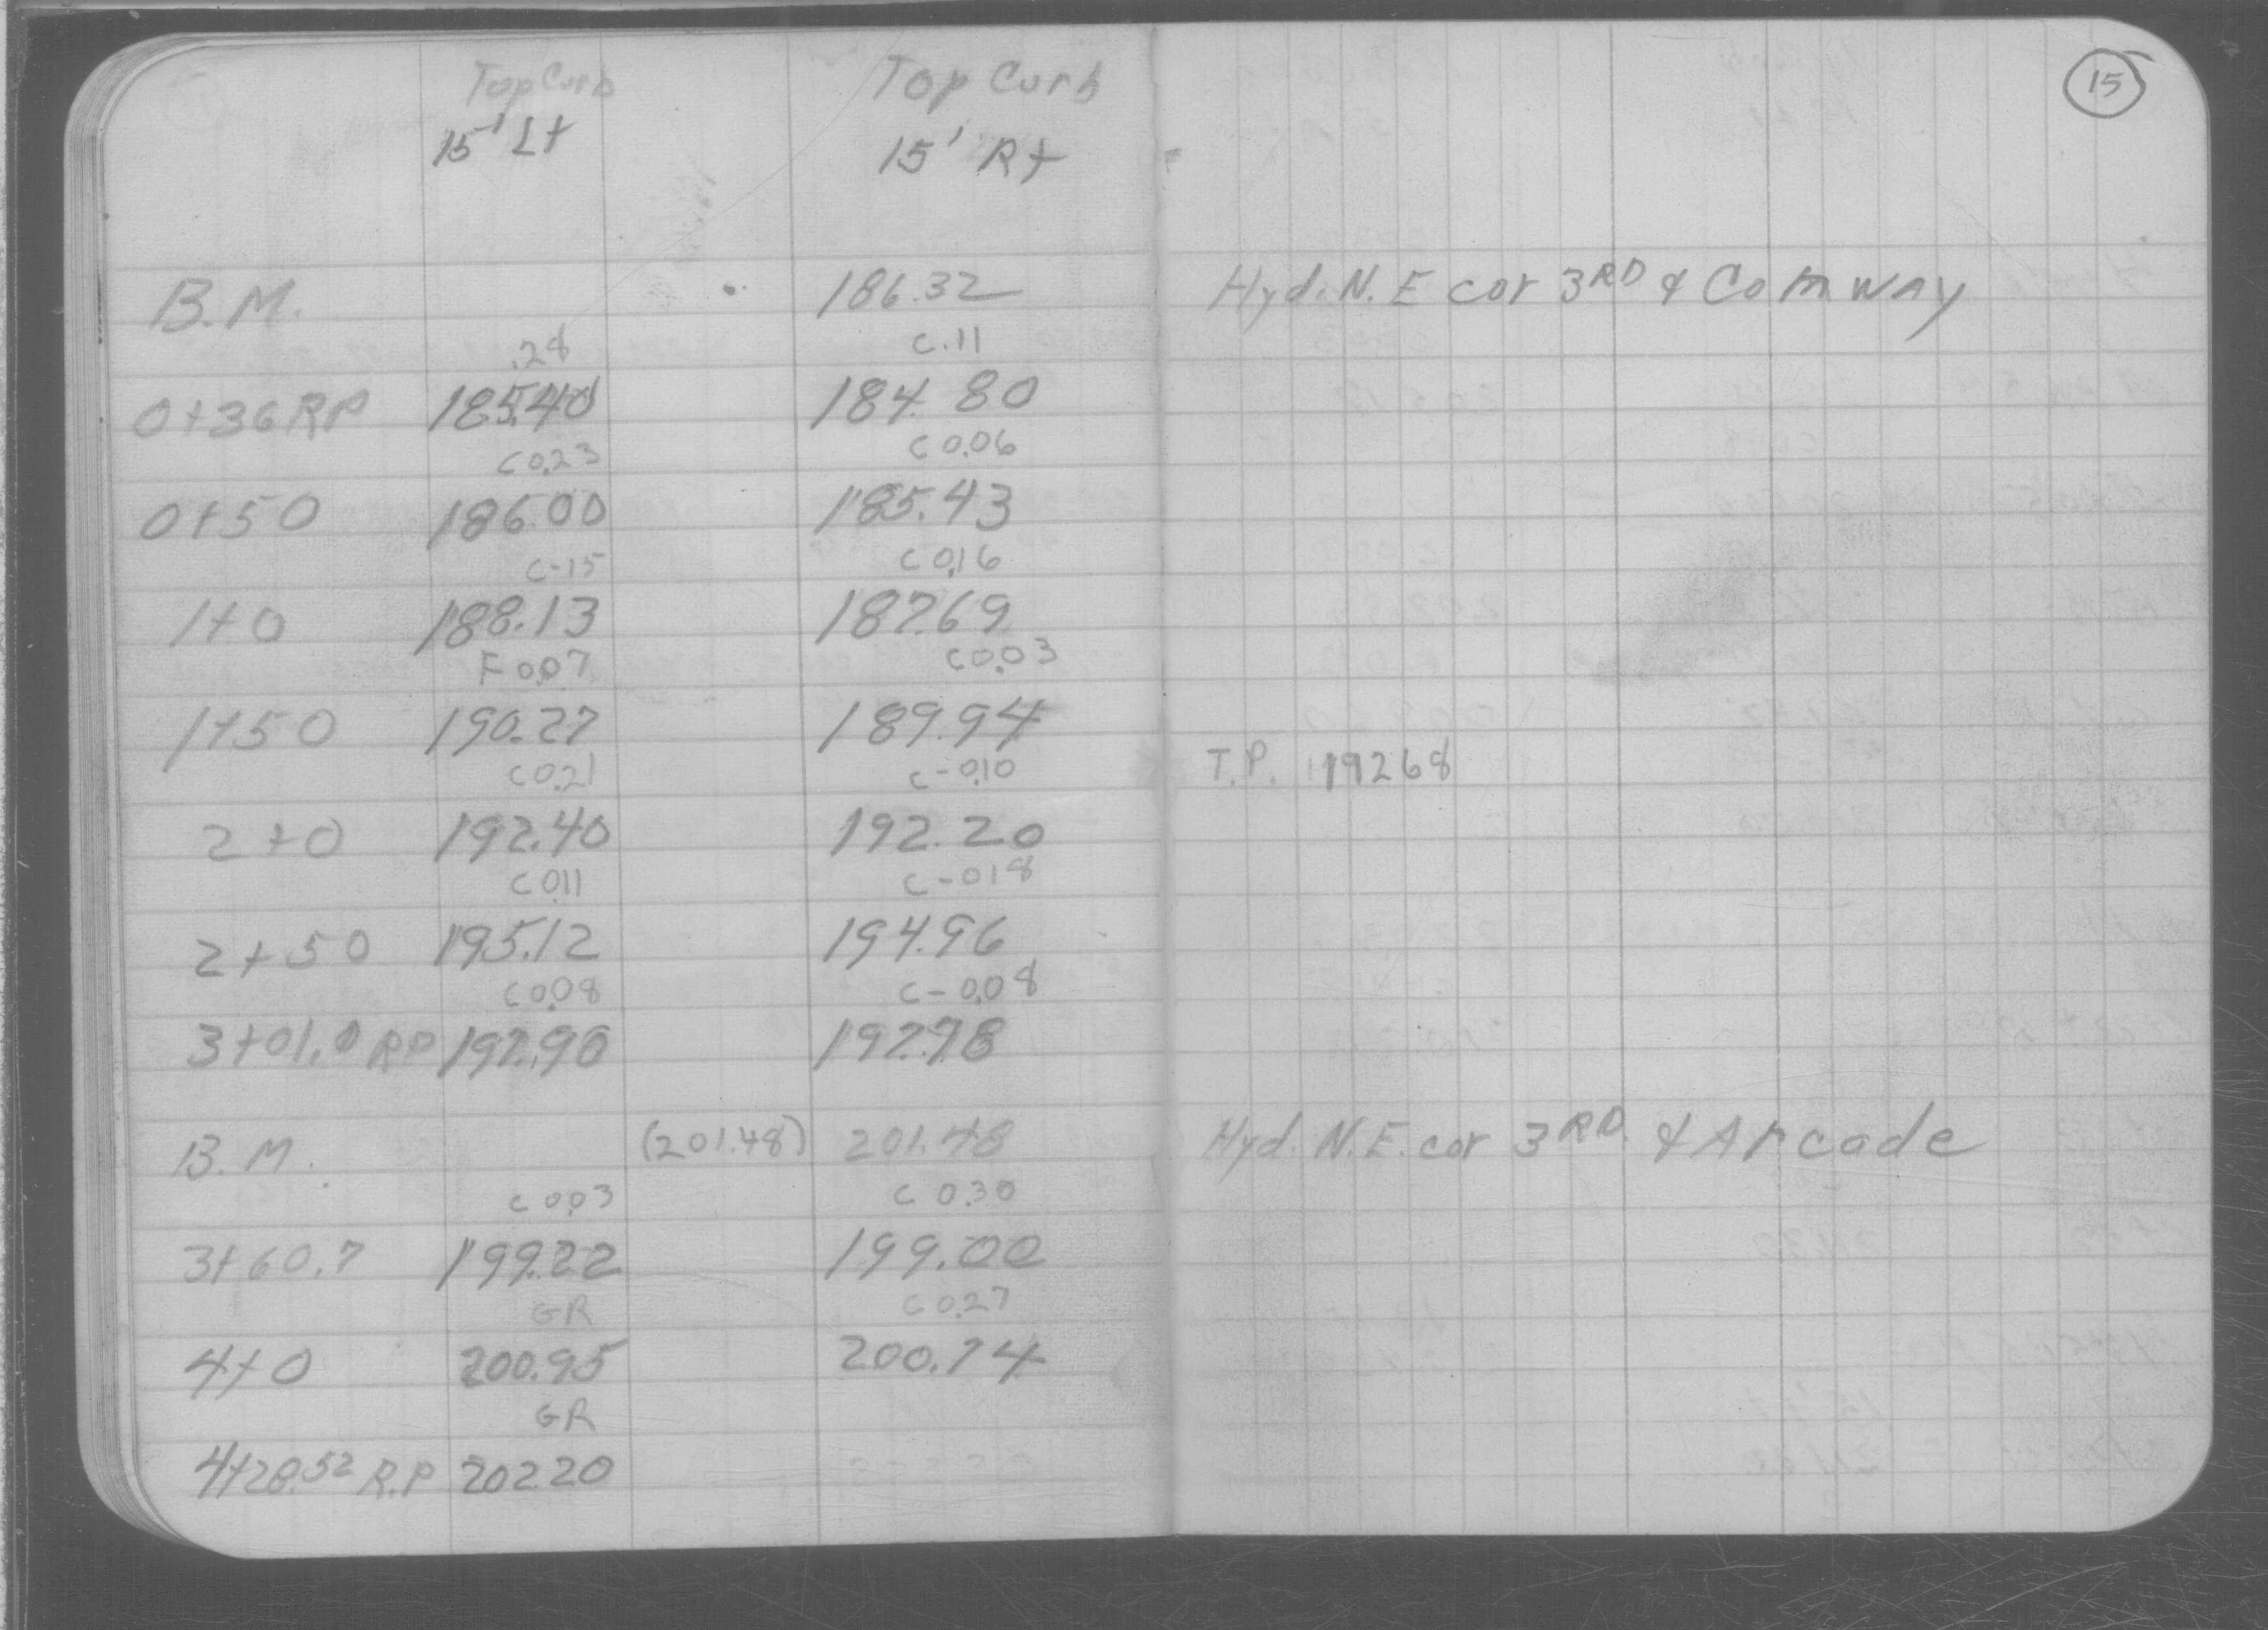 15
Top Curb Top Curb
15' Lt 15' Rt
B.M. 186.32 Hyd. N.E cor 3RD & Comway
.28 C.11
0+36 RP 185.40 184.80
C 0.23 C 0.06
0+50 186.00 185.43
C-15 C 0.16
1+0 188.13 187.69
F 0.07 C 0.03
1+50 190.27 189.94
C 0.21 C-0.10 T.P. 192.68
2+0 192.40 192.20
C 0.11 C-0.18
2+50 195.12 194.96
C 0.08 C-0.08
3+01.0 RP 197.90 197.78
B.M. (201.48) 201.48 Hyd. N.E. cor 3RD. & Arcade
C 0.03 C 0.30
3+60.7 199.22 199.00
GR C 0.27
4+0 200.95 200.74
GR
4+28.52 R.P 202.20